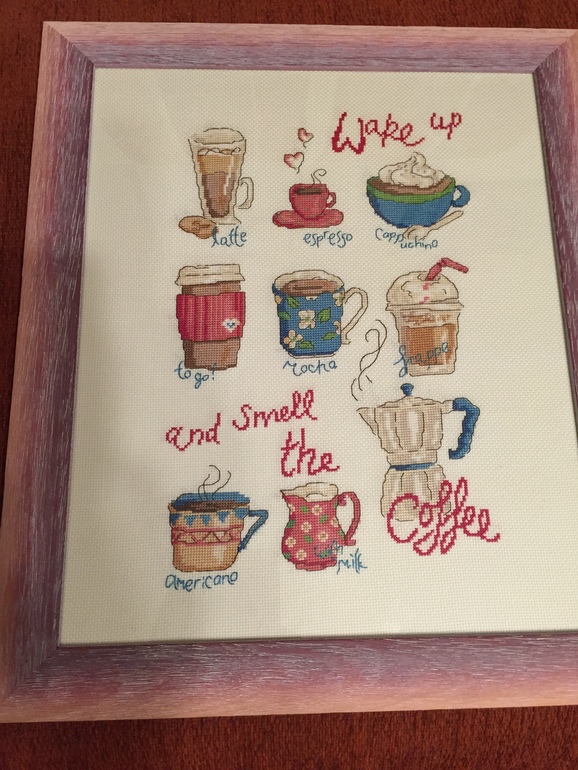 Wake up
latte
espresso
Cappuchino
to go!
Mocha
frappe
and smell
the
Coffee
americano
milk